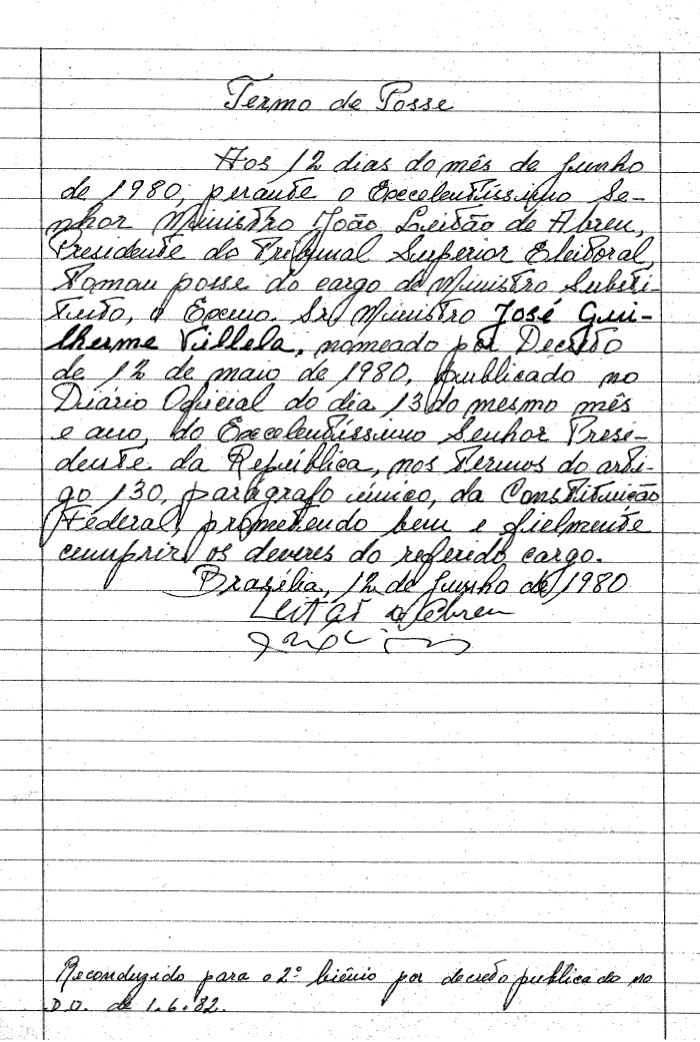 Termo de Posse
Aos 12 dias do mês de Junho
de 1980, perante o Excelentíssimo Se-
nhor Ministro João Leitão de Abreu,
Presidente do Tribunal Superior Eleitoral,
tomou posse do cargo de Ministro Substi-
tuto, o Exmo. Sr. Ministro José Gui-
lherme Villela, nomeado por Decreto
de 12 de maio de 1980, publicado no
Diário Oficial do dia 13 do mesmo mês
e ano, do Excelentíssimo Senhor Presi-
dente da República, nos termos do arti-
go 130, parágrafo único, da Constituição
Federal, prometendo bem e fielmente
cumprir os deveres do referido cargo.
Brasília, 12 de Junho de 1980
Leitão de Abreu
Reconduzido para o 2º biênio por decreto publicado no
D.O. de 1.6.82.